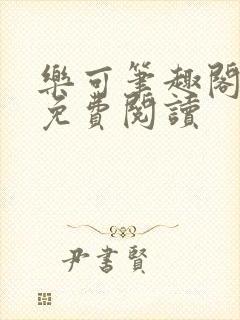 樂可筆趣閣
免費閱讀
尹書賢